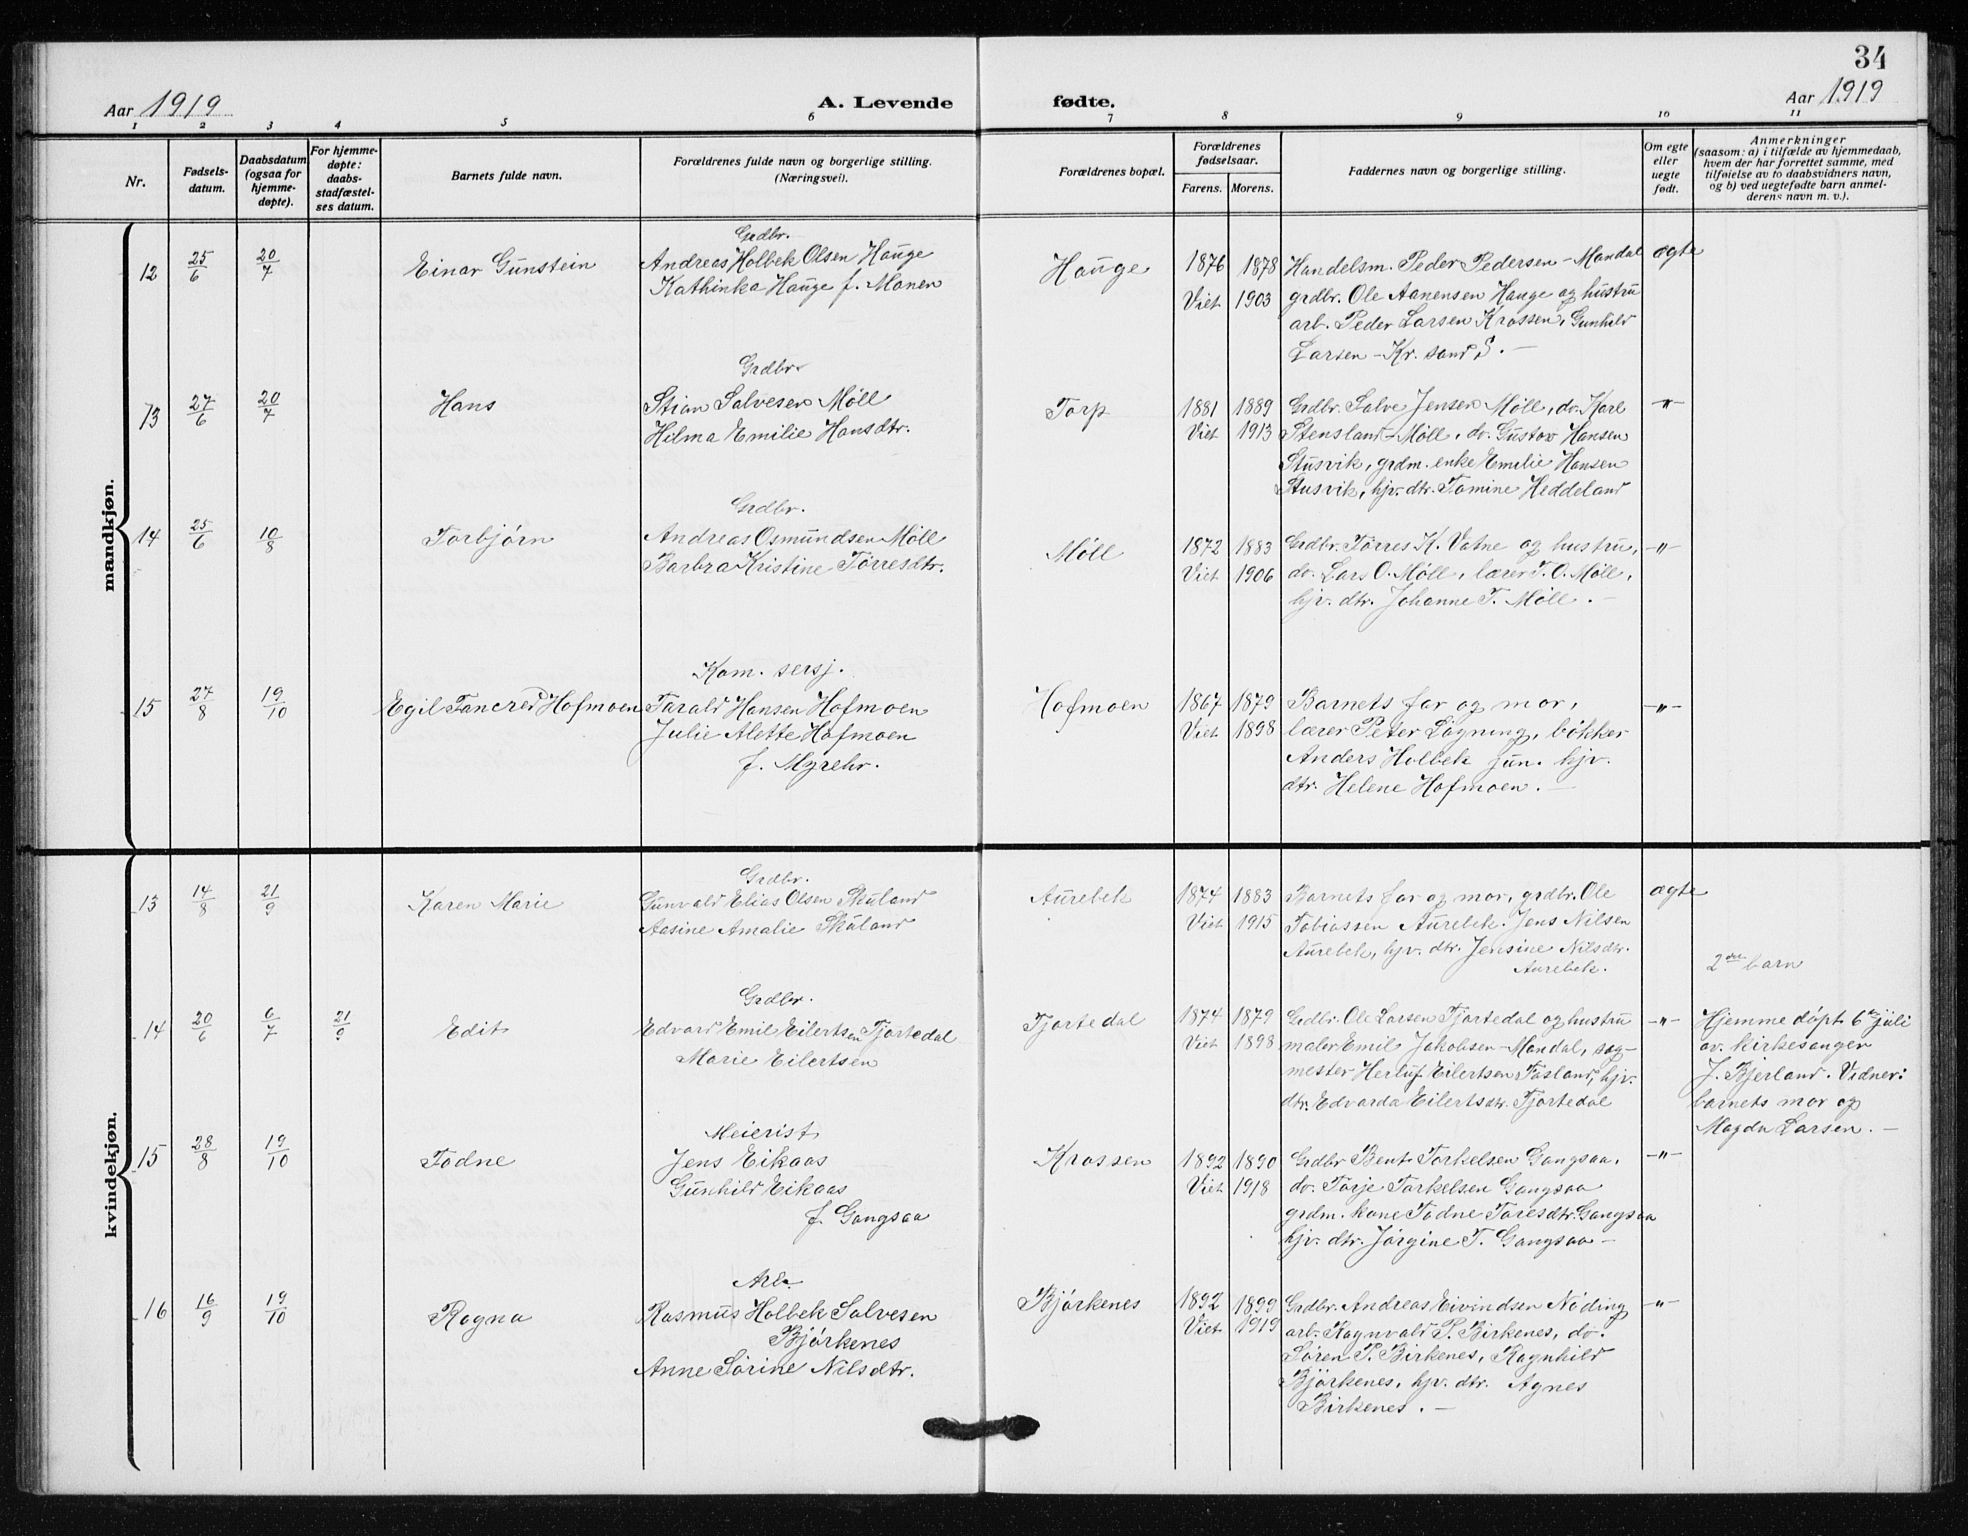 34
Aar 1919
A. Levende fødte.
Aar 1919
1 2 3 4 5 6 7 8 9 10 11
Nr.
Fødsels-
datum.
Daabsdatum
(ogsaa for
hjemme-
døpte).
For hjemme-
døpte:
daabs-
stadfæstel-
ses datum.
Barnets fulde navn.
Forældrenes fulde navn og borgerlige stilling.
(Næringsvei).
Forældrenes bopæl.
Forældrenes
fødselsaar.
Farens. Morens.
Faddernes navn og borgerlige stilling.
Om egte
eller
uegte
født.
Anmerkninger
(saasom: a) i tilfælde av hjemmedaab,
hvem der har forrettet samme, med
tilføielse av to daabsvidners navn,
og b) ved uegtefødte barn anmel-
derens navn m. v.).
mandkjøn.
12
25/6
20/7
Einar Gunstein
Grdbr.
Andreas Holbek Olsen Hauge
Kathinka Hauge f. Monen
Hauge
1876 1878
Viet 1903
Handelsm. Peder Pedersen - Mandal
grdbr. Ole Aanensen Hauge og hustru
arb. Peder Larsen Krossen, Gunhild
Larsen - Kr. sand S. -
ægte
13
27/6
20/7
Hans
Grdbr.
Stian Salvesen Møll
Hilma Emilie Hansdtr.
Torp
1881 1889
Viet 1913
Grdbr. Salve Jensen Møll, do. Karl
Stensland - Møll, do. Gustav Hansen
Stusvik, grdm. enke Emilie Hansen
Stusvik, hjv. dtr. Tomine Heddeland
-"-
14
25/6
10/8
Torbjørn
Grdbr.
Andreas Osmundsen Møll
Barbra Kristine Tørresdtr.
Møll
1872 1883
Viet 1906
Grdbr. Tørres K. Vatne og hustru,
do. Lars O. Møll, lærer T. O. Møll,
hjv. dtr. Johanne T. Møll. -
-"-
15
27/8
19/10
Egil Tancred Hofmoen
Kom. sersj.
Tarald Hansen Hofmoen
Julie Alette Hofmoen
f. Myrehr.
Hofmoen
1867 1879
Viet 1898
Barnets far og mor,
lærer Peter Løgning, bøkker
Anders Holbek jun. hjv.
dtr. Helene Hofmoen. -
-"-
kvindekjøn.
13
14/8
21/9
Karen Marie
Grdbr.
Gunvald Elias Olsen Skuland
Aasine Amalie Skuland
Aurebek
1874 1883
Viet 1915
Barnets far og mor, grdbr. Ole
Tobiassen Aurebek. Jens Nilsen
Aurebek, hjv. dtr. Jensine Nilsdtr.
Aurebek.
ægte
2det barn
14
20/6
6/7
21/9
Edit
Grdbr.
Edvard Emil Eilertsen Tjortedal
Marie Eilertsen
Tjortedal
1874 1879
Viet 1898
Grdbr. Ole Larsen Tjortedal og hustru
maler Emil Jakobsen - Mandal, sag-
mester Herluf Eilertsen Tosland, hjv.
dtr. Edvarda Eilertsdtr. Tjortedal
-"-
Hjemmedøpt 6te juli
av. kirkesanger
J. Bjerland. Vidner:
barnets mor og
Magda Larsen. -
15
28/8
19/10
Todne
Meierist
Jens Eikaas
Gunhild Eikaas
f. Gangsaa
Krossen
1892 1890
Viet 1918
Grdbr Bent Torkelsen Gangsaa,
do. Torje Torkelsen Gangsaa
grdm. kone Todne Toresdtr. Gangsaa
hjv. dtr. Jørgine T. Gangsaa -
-"-
16
16/9
19/10
Ragna
Arb.
Rasmus Holbek Salvesen
Bjørkenes
Anne Sørine Nilsdtr.
Bjørkenes
1892 1899
Viet 1919
Grdbr. Andreas Eivindsen Nøding
arb. Ragnvald P. Birkenes, do.
Søren P. Birkenes, Ragnhild
Bjørkenes, hjv. dtr. Agnes
Birkenes. -
-"-